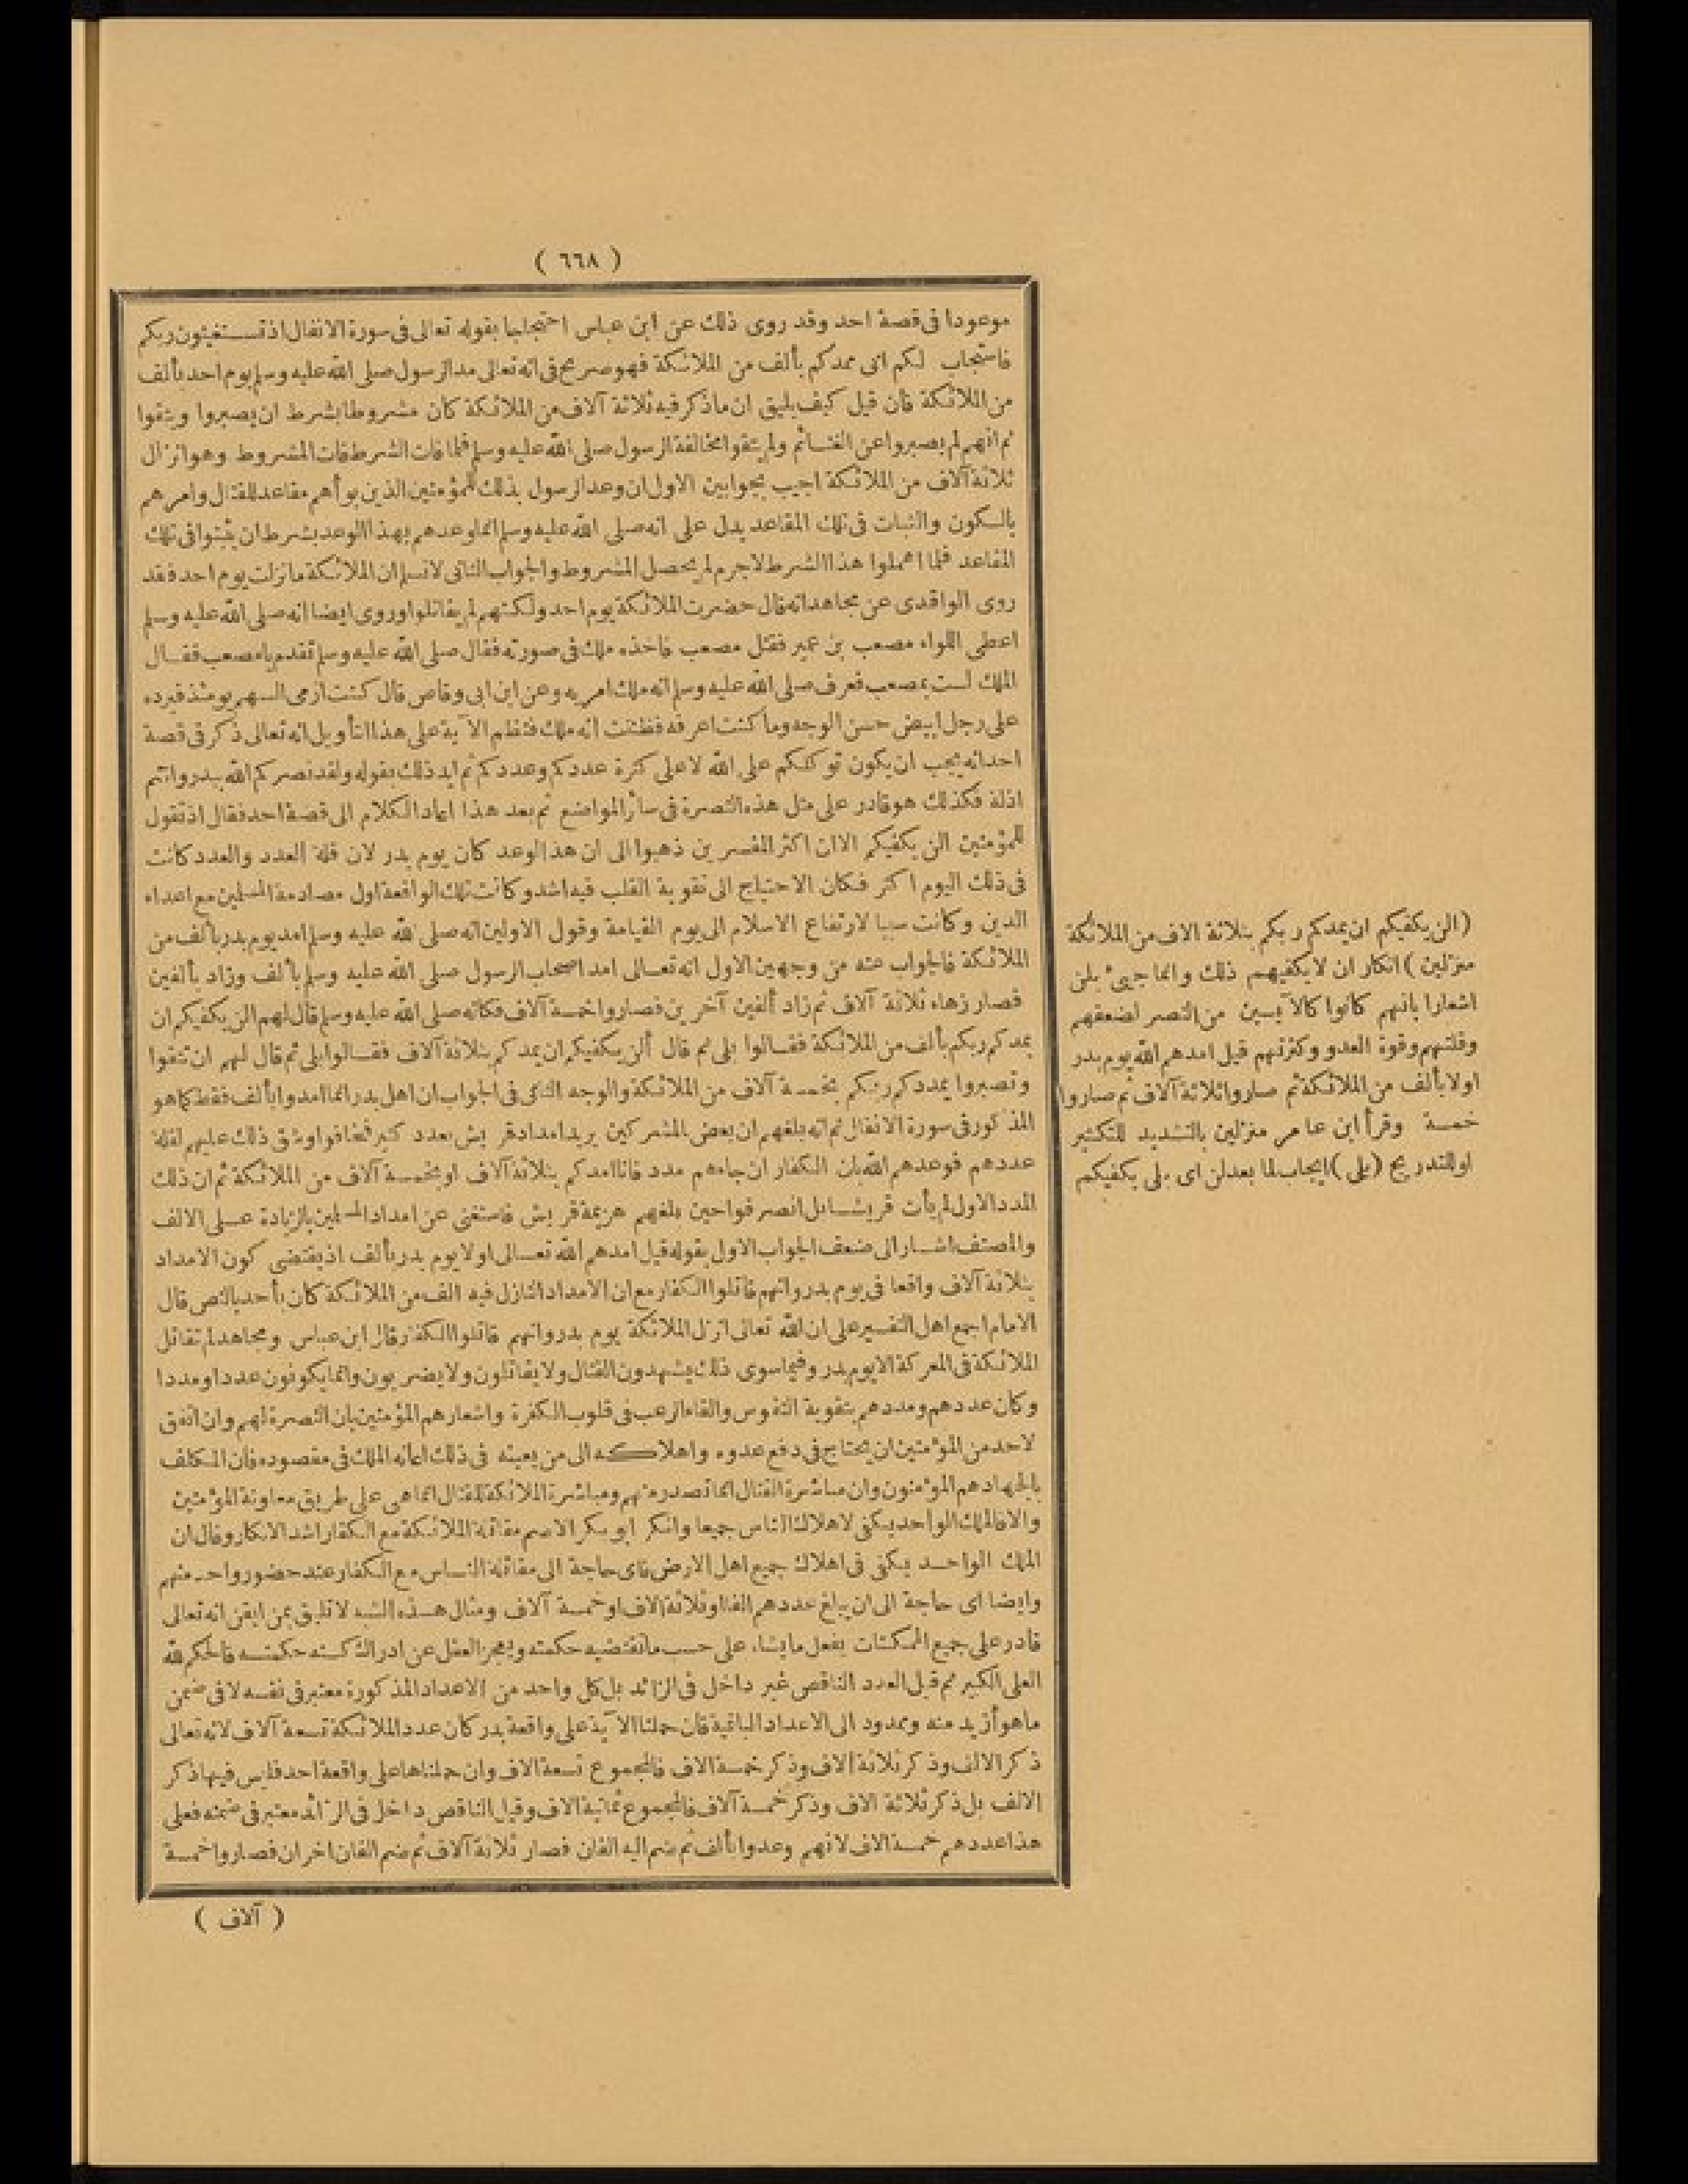 ( ٦٦٨ )
موعودا فى قصة احد وقد روى ذلك عن ابن عباس احتجاجا بقوله تعالى فى سورة الانفال اذ تستغيثون ربكم
فاستجاب لكم انى ممدكم بألف من الملائكة فهو صريح فى انه تعالى مد الرسول صلى الله عليه وسلم يوم احد بألف
من الملائكة فان قيل كيف يليق ان ما ذكر فيه ثلاثة آلاف من الملائكة كان مشروطا بشرط ان يصبروا ويتقوا
ثم انهم لم يصبروا عن الغنائم ولم يتقوا مخالفة الرسول صلى الله عليه وسلم فلما فات الشرط فات المشروط وهو انزال
ثلاثة آلاف من الملائكة اجيب بجوابين الاول ان وعد الرسول بذلك للمؤمنين الذين بوأهم مقاعد للقتال وامرهم
بالسكون والثبات فى تلك المقاعد يدل على انه صلى الله عليه وسلم انما وعدهم بهذا الوعد بشرط ان يثبتوا فى تلك
المقاعد فلما اهملوا هذا الشرط لاجرم لم يحصل المشروط والجواب الثانى لا نسلم ان الملائكة ما نزلت يوم احد فقد
روى الواقدى عن مجاهد انه قال حضرت الملائكة يوم احد ولكنهم لم يقاتلوا وروى ايضا انه صلى الله عليه وسلم
اعطى اللواء مصعب بن عمير فقتل مصعب فاخذه ملك فى صورته فقال صلى الله عليه وسلم تقدم يا مصعب فقال
الملك لست بمصعب فعرف صلى الله عليه وسلم انه ملك امر به وعن ابن ابى وقاص قال كنت ارمى السهم يومئذ فيرده
على رجل ابيض حسن الوجه وما كنت اعرفه فظننت انه ملك فنظم الآية على هذا التأويل انه تعالى ذكر فى قصة
احد انه يجب ان يكون توكلكم على الله لا على كثرة عددكم وعددكم ثم ايد ذلك بقوله ولقد نصركم الله ببدر وانتم
اذلة فكذلك هو قادر على مثل هذه النصرة فى سائر المواضع ثم بعد هذا اعاد الكلام الى قصة احد فقال اذ تقول
للمؤمنين الن يكفيكم الا ان اكثر المفسرين ذهبوا الى ان هذ الوعد كان يوم بدر لان قلة العدد والعدد كانت
فى ذلك اليوم اكثر فكان الاحتياج الى تقوية القلب فيه اشد وكانت تلك الواقعة اول مصادمة المسلمين مع اعداء
الدين وكانت سببا لارتفاع الاسلام الى يوم القيامة وقول الاولين انه صلى لله عليه وسلم امد يوم بدر بألف من
الملائكة فالجواب عنه من وجهين الاول انه تعالى امد اصحاب الرسول صلى الله عليه وسلم بألف وزاد بألفين
فصار زهاء ثلاثة آلاف ثم زاد ألفين آخرين فصاروا خمسة آلاف فكانه صلى الله عليه وسلم قال لهم الن يكفيكم ان
يمدكم ربكم بألف من الملائكة فقالوا بلى ثم قال ألن يكفيكم ان يمدكم بثلاثة آلاف فقالوا بلى ثم قال لهم ان تتقوا
وتصبروا يمددكم ربكم بخمسة آلاف من الملائكة والوجه الثانى فى الجواب ان اهل بدر انما امدوا بألف فقط كما هو
المذكور فى سورة الانفال ثم انه بلغهم ان بعض المشركين يريد امداد قريش بعدد كثير فخافوا وشق ذلك عليهم لقلة
عددهم فوعدهم الله بان الكفار ان جاءهم مدد فانا امدكم بثلاثة آلاف او بخمسة آلاف من الملائكة ثم ان ذلك
المدد الاول لم يأت قريشا بل انصرفوا حين بلغهم هزيمة قريش فاستغنى عن امداد المسلمين بالزيادة على الالف
والمصنف اشار الى ضعف الجواب الاول بقوله قيل امدهم الله تعالى اولا يوم بدر بألف اذ يقتضى كون الامداد
بثلاثة آلاف واقعا فى يوم بدر وانهم قاتلوا الكفار مع ان الامداد النازل فيه الف من الملائكة كان بأحد بالنص قال
الامام اجمع اهل التفسير على ان الله تعالى انزل الملائكة يوم بدر وانهم قاتلوا الكفار قال ابن عباس ومجاهد لم تقاتل
الملائكة فى المعركة الا يوم بدر وفيما سوى ذلك يشهدون القتال ولا يقاتلون ولا يضربون وانما يكونون عددا ومددا
وكان عددهم ومددهم بتقوية النفوس والقاء الرعب فى قلوب الكفرة واشعارهم المؤمنين بان النصرة لهم وان اتفق
لاحد من المؤمنين ان يحتاج فى دفع عدوه واهلاكه الى من يعينه فى ذلك اعانه الملك فى مقصوده فان المكلف
بالجهاد هم المؤمنون وان مباشرة القتال انما تصدر منهم ومباشرة الملائكة للقتال انما هى على طريق معاونة المؤمنين
والا فالملك الواحد يكفى لاهلاك الناس جميعا وانكر ابو بكر الاصم مقاتلة الملائكة مع الكفار اشد الانكار وقال ان
الملك الواحد يكفى فى اهلاك جميع اهل الارض فاى حاجة الى مقاتلة الناس مع الكفار عند حضور واحد منهم
وايضا اى حاجة الى ان يبلغ عددهم الفا او ثلاثة الاف او خمسة آلاف ومثال هذه الشبه لا تليق بمن ايقن انه تعالى
قادر على جميع الممكنات يفعل ما يشاء على حسب ما تقتضيه حكمته ويعجز العقل عن ادراك كنه حكمته فالحكم لله
العلى الكبير ثم قيل العدد الناقص غير داخل فى الزائد بل كل واحد من الاعداد المذكورة معتبر فى نفسه لا فى ضمن
ما هو أزيد منه ومعدود الى الاعداد الباقية فان حملنا الآية على واقعة بدر كان عدد الملائكة تسعة آلاف لانه تعالى
ذكر الالف وذكر ثلاثة الاف وذكر خمسة الاف فالمجموع تسعة الاف وان حملناها على واقعة احد فليس فيها ذكر
الالف بل ذكر ثلاثة الاف وذكر خمسة آلاف فالمجموع ثمانية الاف وقيل الناقص داخل فى الزائد معتبر فى ضمنه فعلى
هذا عددهم خمسة الاف لانهم وعدوا بألف ثم ضم اليه الفان فصار ثلاثة آلاف ثم ضم الفان اخران فصاروا خمسة
( آلاف )
(الن يكفيكم ان يمدكم ربكم بثلاثة الاف من الملائكة
منزلين) انكار ان لا يكفيهم ذلك وانما جيئ بلن
اشعارا بانهم كانوا كالآيسين من النصر لضعفهم
وقلتهم وقوة العدو وكثرتهم قيل امدهم الله يوم بدر
اولا بألف من الملائكة ثم صاروا ثلاثة آلاف ثم صاروا
خمسة وقرأ ابن عامر منزلين بالتشديد للتكثير
او للتدريج (بلى) ايجاب لما بعد لن اى بلى يكفيكم